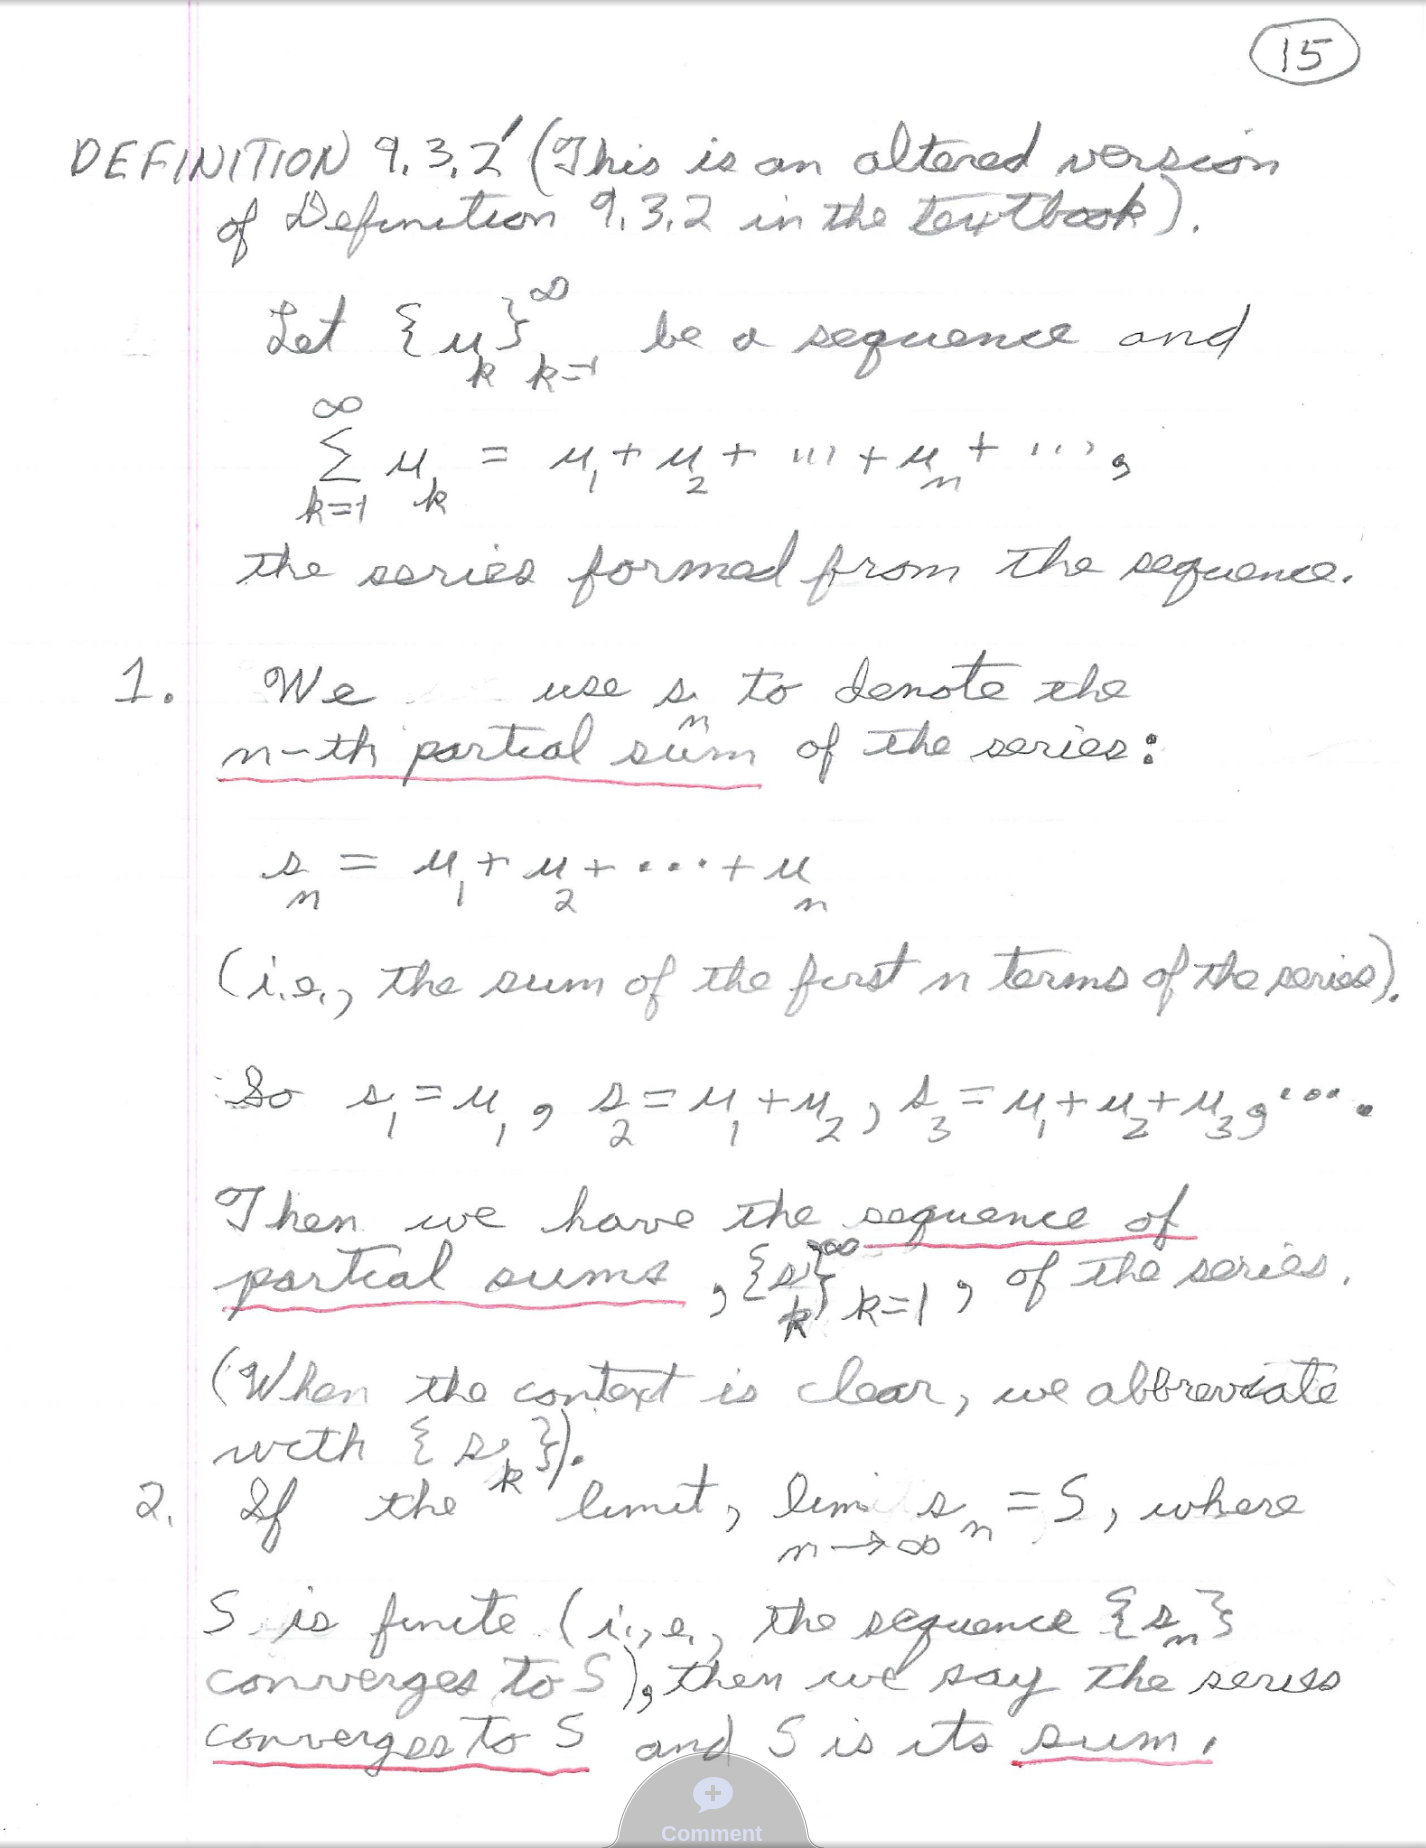 15
DEFINITION 9.3.2' (This is an altered version
of Definition 9.3.2 in the textbook).
Let {u_k}_{k=1}^∞ be a sequence and
∑_{k=1}^∞ u_k = u_1 + u_2 + ... + u_n + ...,
the series formed from the sequence.
1. We use s_n to denote the
n-th partial sum of the series:
s_n = u_1 + u_2 + ... + u_n
(i.e., the sum of the first n terms of the series).
So s_1 = u_1, s_2 = u_1 + u_2, s_3 = u_1 + u_2 + u_3, ....
Then we have the sequence of
partial sums, {s_k}_{k=1}^∞, of the series.
(When the context is clear, we abbreviate
with {s_k}).
2. If the limit, lim_{n→∞} s_n = S, where
S is finite (i.e., the sequence {s_n}
converges to S), then we say the series
converges to S and S is its sum.
Comment